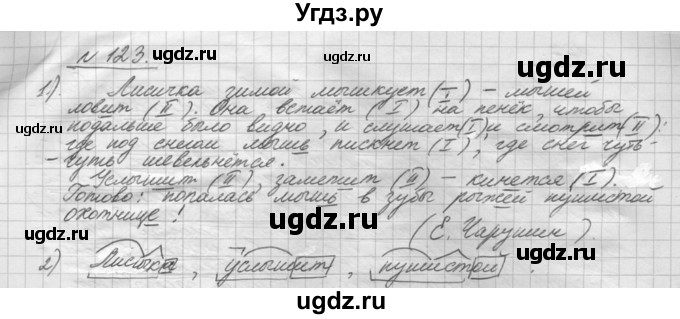 Угдз.ру
№ 123.
1). Лисичка зимой мышкует (I) – мышей
ловит (II). Она встаёт (I) на пенёк, чтобы
подальше было видно, и слушает (I) и смотрит (II):
где под снегом мышь пискнет (I), где снег чуть-
-чуть шевельнётся.
Услышит (II), заметит (II) – кинется (I).
Готово: попалась мышь в зубы рыжей пушистой
охотнице!
(Е. Чарушин)
2) Лисичка, услышит, пушистой.
ugdz.ru
ugdz.ru
ugdz.ru
ugdz.ru
ugdz.ru
ugdz.ru
ugdz.ru
ugdz.ru
ugdz.ru
ugdz.ru
ugdz.ru